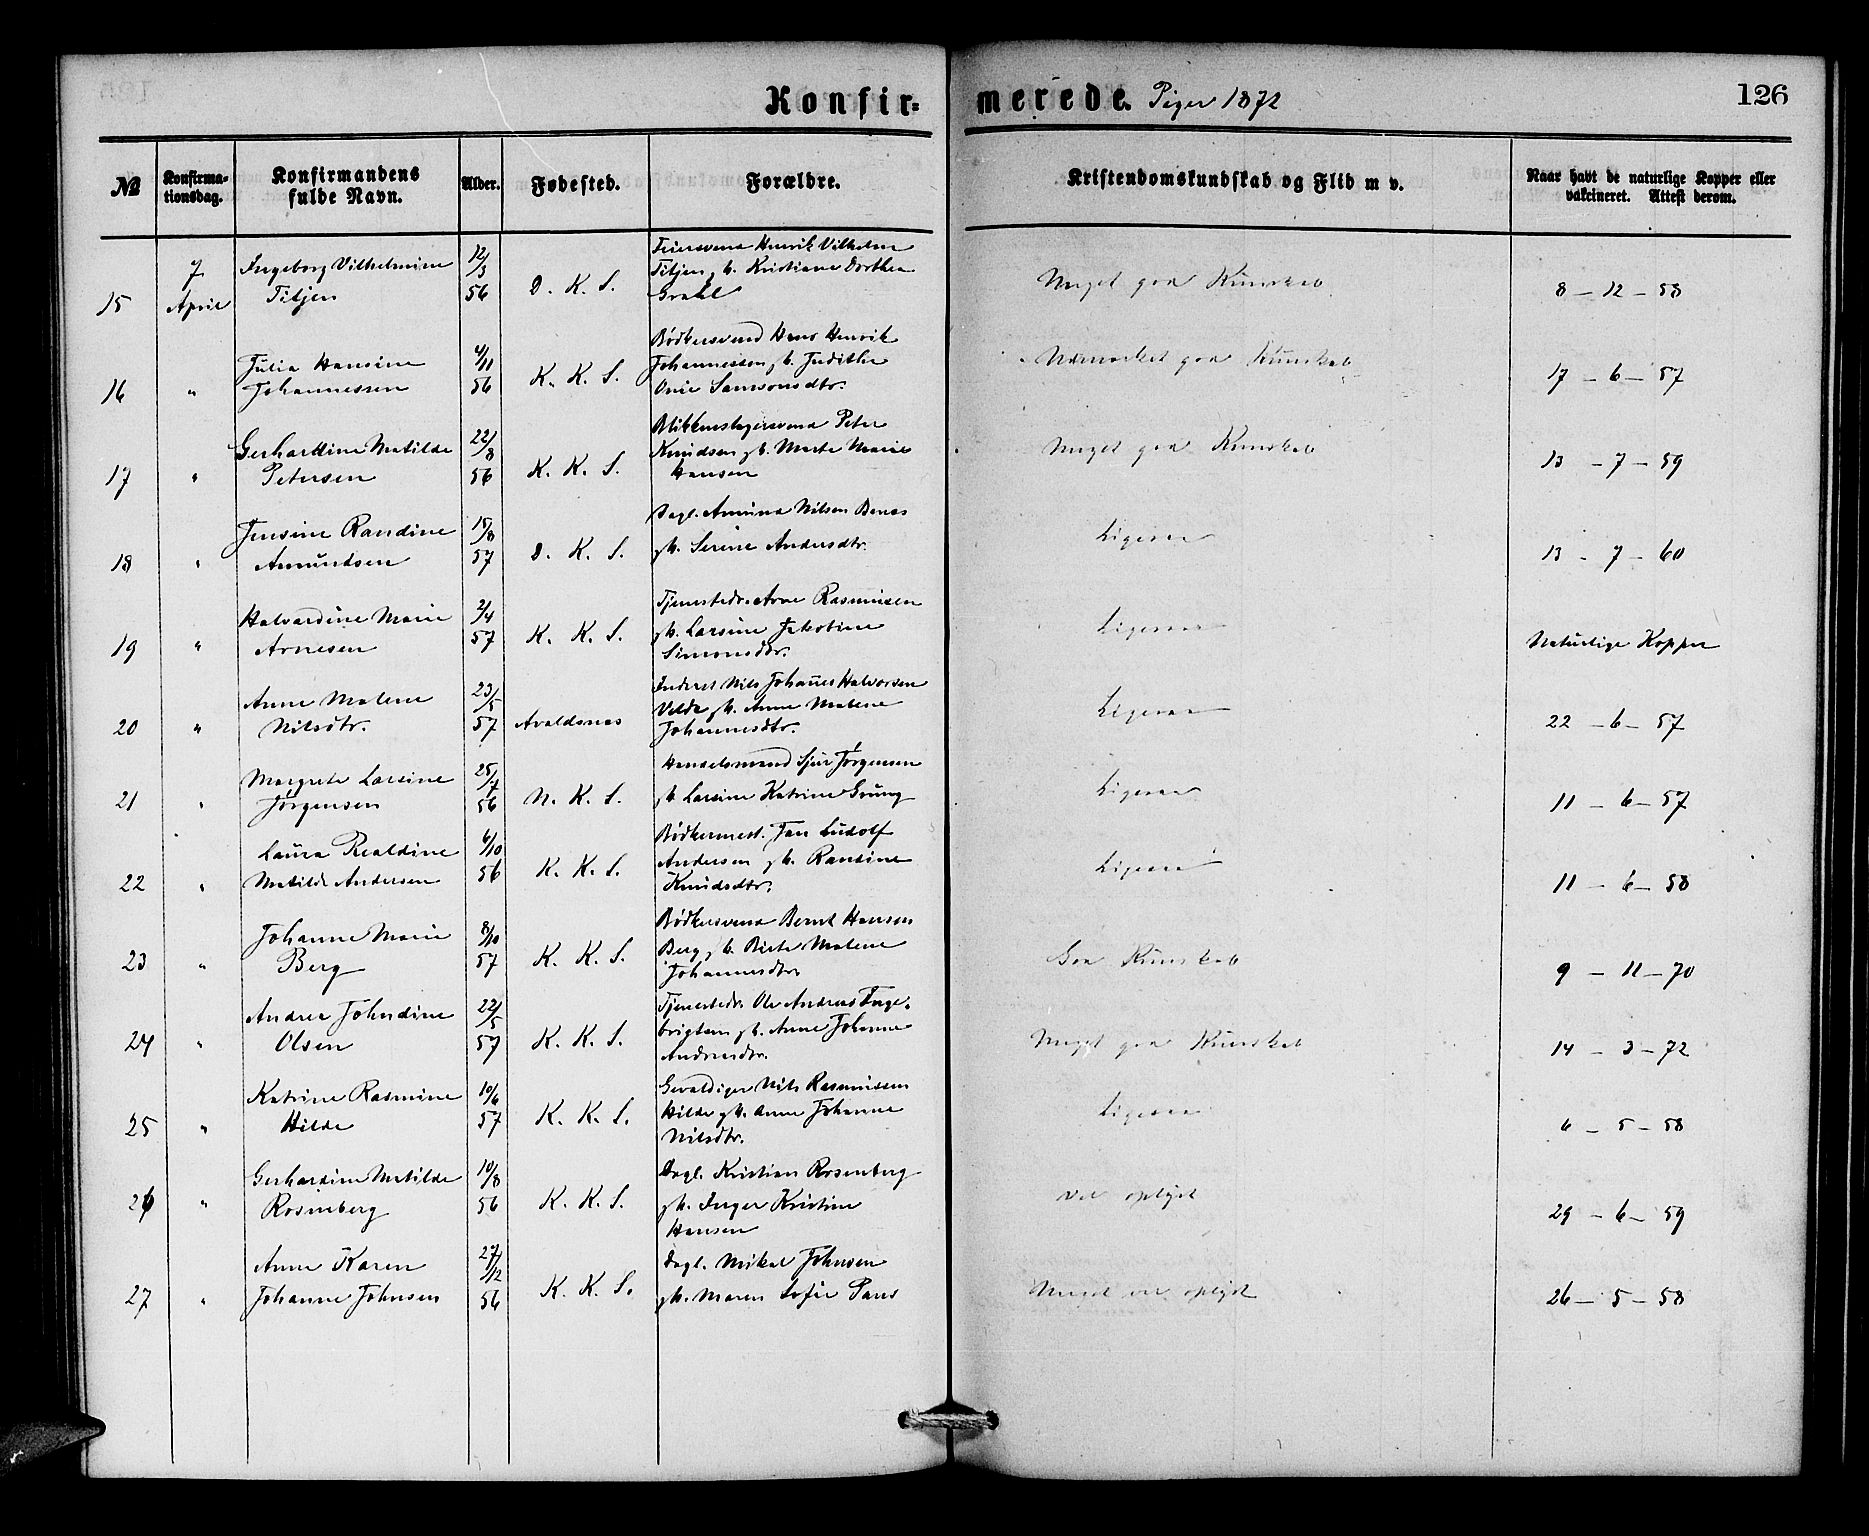 Konfirmerede. Piger 1872
126
№ Konfirmationsdag. Konfirmandens fulde Navn. Alder. Fødested. Forældre. Kristendomskundskab og Flid m v. Naar havt de naturlige Kopper eller vakcineret. Attest derom.
15 7 April Ingeborg Vilhelmine Titjen 12/3 56 D. K. S. Feiersvend Henrik Vilhelm Titjen, h. Kristiane Dorthea Meget god Kunskab 8 - 12 - 58
16 " Julia Hansine Johannessen 4/11 56 K. K. S. Bødkersvend Hans Henrik Johannessen, h. Judithe Samsonsdtr. Udmærket god Kunskab 17 - 6 - 57
17 " Gerhardine Matilde Petersen 22/8 56 K. K. S. Blikkenslagersvend Peter Knudsen, h. Marte Marie Hansen Meget god Kunskab 13 - 7 - 59
18 " Jensine Randine Amundsen 15/8 57 D. K. S. Dagl. Amund Nilsen gh. Serine Andersdtr. Ligesaa 13 - 7 - 60
19 " Halvardine Marie Arnesen 2/4 57 K. K. S. Tjenestedr. Arne Rasmussen gh. Larsine Jakobine Simonsdtr. Ligesaa Naturlige Kopper
20 " Anne Malene Nilsdtr. 23/5 57 Avaldsnes Inderst Nils Johannes Halvorsen Velde, h. Anne Malene Johannesdtr. Ligesaa 22 - 6 - 57
21 " Margrete Larsine Jørgensen 25/7 56 N. K. S. Handelsmand Sjur Jørgensen gh. Larsine Katrine Grung Ligesaa 11 - 6 - 57
22 " Laura Realdine Matilde Andersen 6/10 56 K. K. S. Bødkermest. Jan Ludolf Andersen gh. Randine Knudsdtr. Ligesaa 11 - 6 - 58
23 " Johanne Marie Berg 8/10 57 K. K. S. Bødkersvend Bernt Hansen Berg, h. Birte Malene Johannesdtr. God Kunskab 9 - 11 - 70
24 " Andrea Johndine Olsen 22/5 57 K. K. S. Tjenestedr. Ole Andreas Ingebrigtsen gh. Anne Johanne Andreasdtr. Meget god Kunskab 14 - 3 - 72
25 " Katrine Rasmine Hilde 10/6 57 K. K. S. Gevaldiger Nils Rasmussen Hilde gh. Anne Johanne Nilsdtr. Ligesaa 6 - 5 - 58
26 " Gerhardine Matilde Rosenberg 10/8 56 K. K. S. Dagl. Kristian Rosenberg gh. Inger Kristine Hansen Vel oplyst 29 - 6 - 59
27 " Anne Karen Johanne Johnsen 27/12 56 K. K. S. Dagl. Mikal Johnsen gh. Maren Sofie Meget vel oplyst 26 - 5 - 58